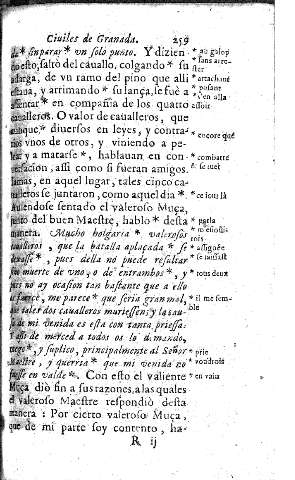 Ciuiles de Granada. 259
sin parar* vn solo punto. Y dizien * au galop
esto, saltò del cauallo, colgando* su * sans arre-
ster
adarga, de vn ramo del pino que alli * attachant
estaua, y arrimando* su lança, se fuè a * posant
sentar* en compañia de los quatro * s'en alla
assoir
caualleros. O valor de caualleros, que
aunque,* diuersos en leyes, y contra- * encore què
rios vnos de otros, y viniendo a pe-
lear y a matarse*, hablauan en con- * combatre
& se tuer
uersacion, assi como si fueran amigos.
Iamas, en aquel lugar, tales cinco ca-
ualleros se juntaron, como aquel dia*. * ce iour là
Auiendose sentado el valeroso Muça,
junto del buen Maestre, hablo* desta * parla
manera. Mucho holgaria* valerosos * m'esioüis
trois
caualleros, que la batalla aplaçada* se * assignée
, pues della no puede resultar * se laissast
sin muerte de vno, o de entrambos*, y * tous deux
pues no ay ocasion tan bastente que a ello
parece, me parece* que seria gran mal, * il me sem-
ble
que tales dos caualleros muriessen: y la cau-
sa de mi venida es esta con tanta priessa:
de merced a todos os lo demando,
ruego*, y suplico, principalmente al Señor * prie
Maestre, y querria* que mi venida no * voudrois
fuesse en valde*. Con esto el valiente * en vain
Muça diò fin a sus razones, a las quales
el valeroso Maestre respondiò desta
manera: Por cierto valeroso Muça,
que de mi parte soy contento, ha-
R ij